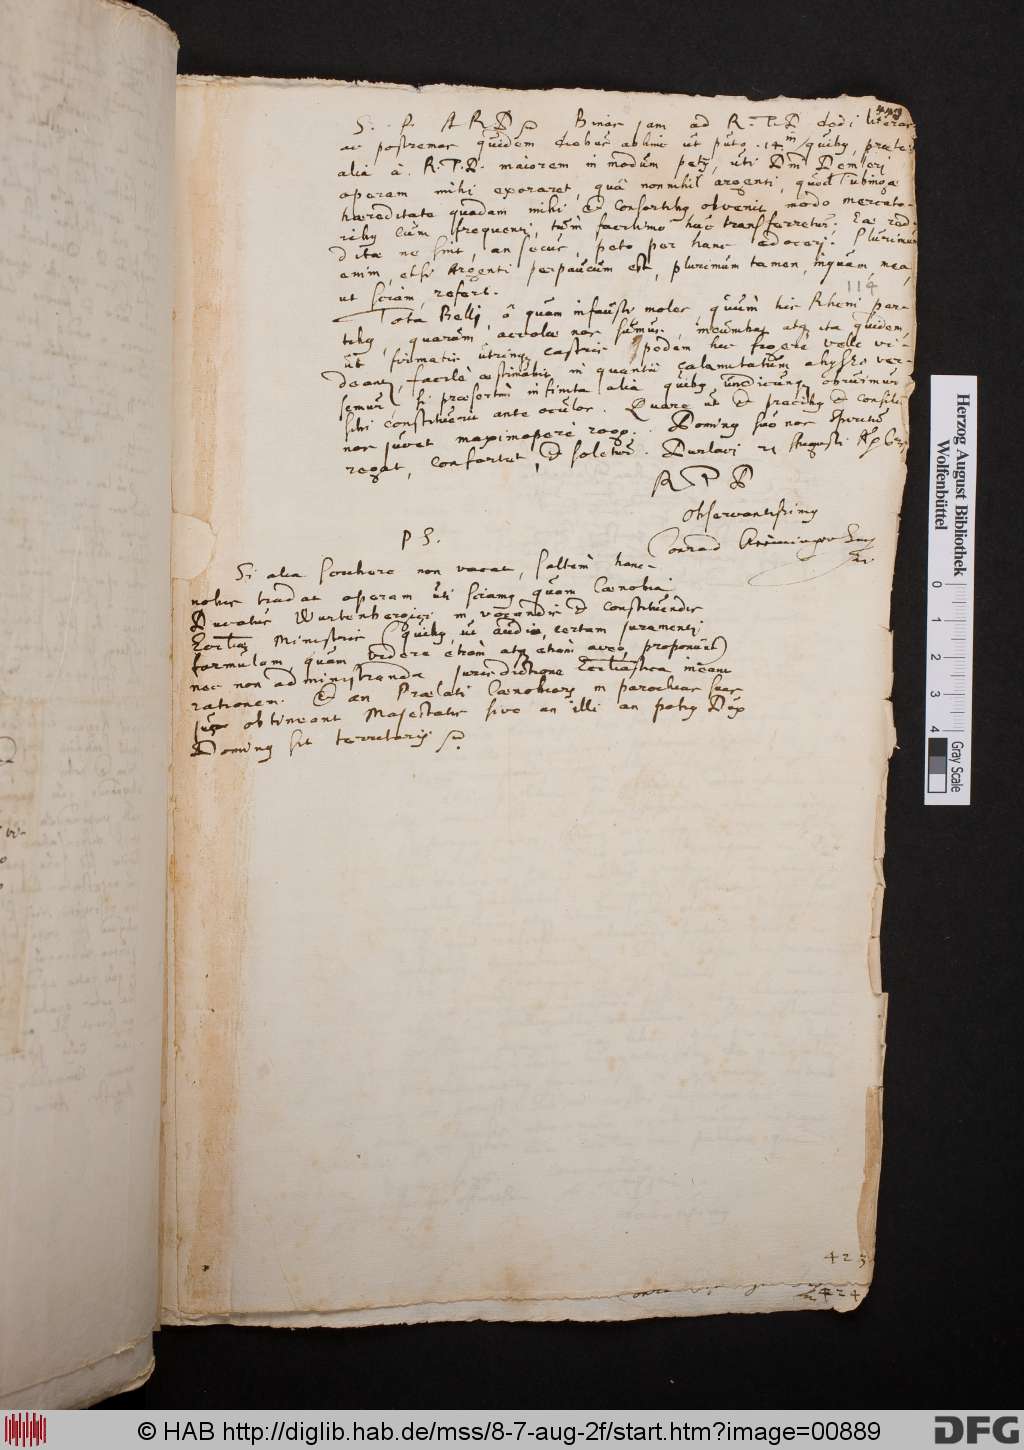 S. P. A R D Binas jam ad R. T. D dedi literas
ac postremas quidem diebus abhinc ut puto 14 in quibus, præter
alia à R. T. D. maiorem in modum petij, uti Dn Demleri
operam mihi exoraret, quâ nonnihil argenti, quod Tubingæ
hæreditate quadam mihi et consortibus obvenit, modo mercato-
ribus cum frequenti, tùm facillimo huc transferretur. Eæ red-
ditæ ne sint, an secus peto per hanc edoceri. Plurimum
enim, etsi Argenti perpaucum est, plurimum tamen, inquam, mea,
ut sciam, refert.
114
Tota Belli, ô quam infausti moles, quùm hic Rheni par-
tibus, quarum accolæ nos sumus, incumbat atque ita quidem,
ut firmatis utrinque castris pedem hic figere velle vi-
deant, facilè æstimabit, in quantâ calamitatum abysso ver-
semur si præsertim infinita alia quibus undicunque obruimur
sibi constituerit ante oculos. Quare ut et precibus et consilio
nos juvet maximopere rogo. Dominus suo nos Spiritu
regat, confortet, et soletur. Durlaci 21 Augusti
R T D
observantissimus
Conrad
P S.
Si alia scribere non vacat, saltem hanc
nobis tradat operam uti sciamus quam Cænobia
Ducatus Wurtenbergici in vocandis et constituendis
Ministris (quibus, ut audio, certam juramenti
formulam, quam videre etiam atque etiam aveo, proponunt)
nec non administranda jurisdictione Ecclesiastica ineant
rationem. Et an Prælati Cænobiorum in parochias suas
jus obtineant Majestatis sive an illi an potius Dux
Dominus sit territorij
423
424
Herzog August Bibliothek
Wolfenbüttel
0 1 2 3 4
Gray Scale
© HAB http://diglib.hab.de/mss/8-7-aug-2f/start.htm?image=00889
DFG